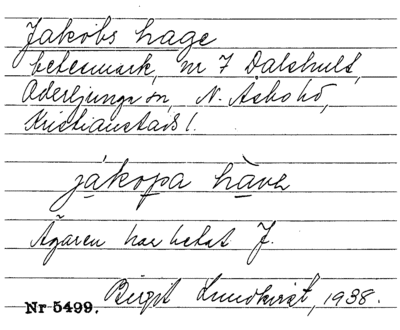 Jakobs hage
betesmark, nr 7 Dalshult,
Örkeljunga sn, N. Åsbo hd,
Kristianstads l.
jákopa hàvə
Ägaren har hetat J.
Birgit Lundkvist, 1938.
Nr 5499.